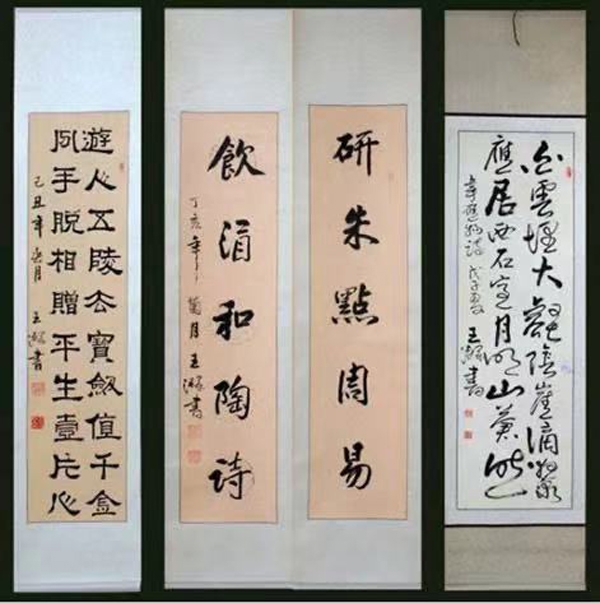 白雲埋大壑陰崖滴夜泉
應居西石室月照山蒼然
韋應物詩 戊子夏 王灝書
研朱點周易
飲酒和陶詩
丁亥年菊月王灝書
遊人五陵去寶劍值千金
分手脫相贈平生壹片心
己丑年 月 王灝書